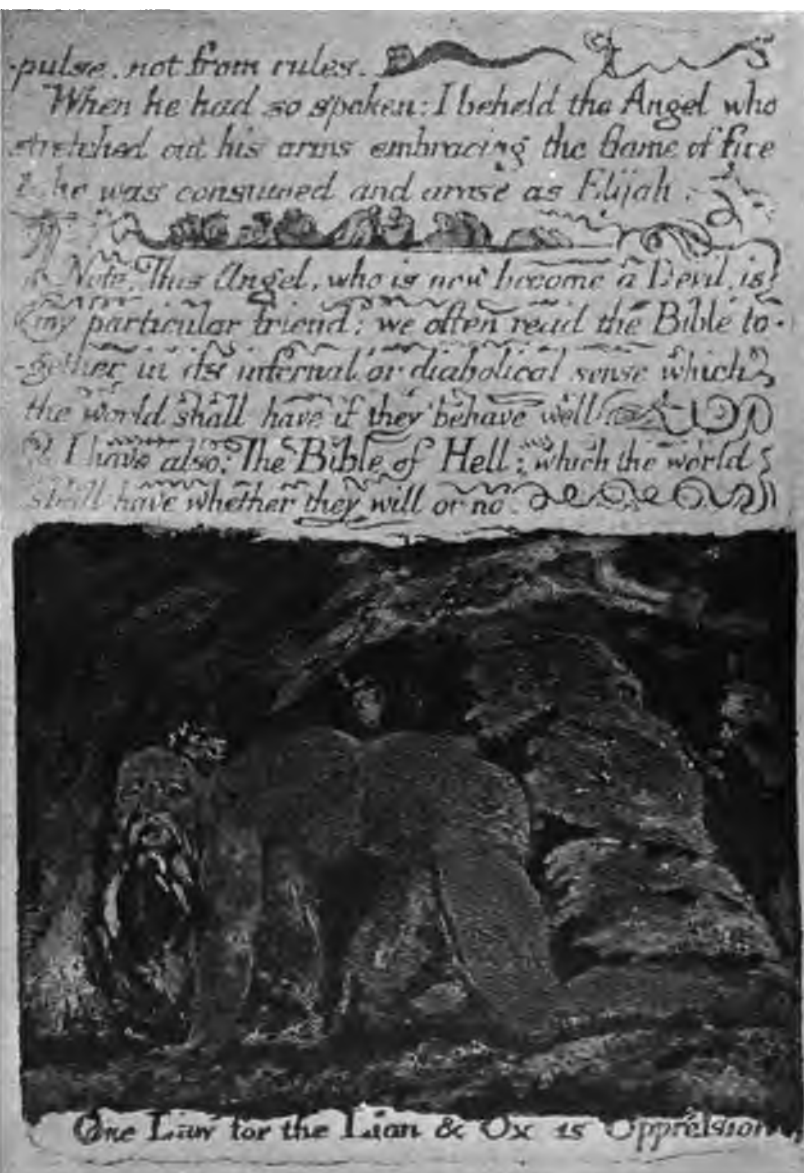 -pulse. not from rules.
When he had so spoken: I beheld the Angel who
stretched out his arms embracing the flame of fire
& he was consumed and arose as Elijah.
Note. This Angel, who is now become a Devil, is
my particular friend: we often read the Bible to-
-gether in its infernal or diabolical sense which
the world shall have if they behave well
I have also: The Bible of Hell: which the world
shall have whether they will or no.
One Law for the Lion & Ox is Oppression